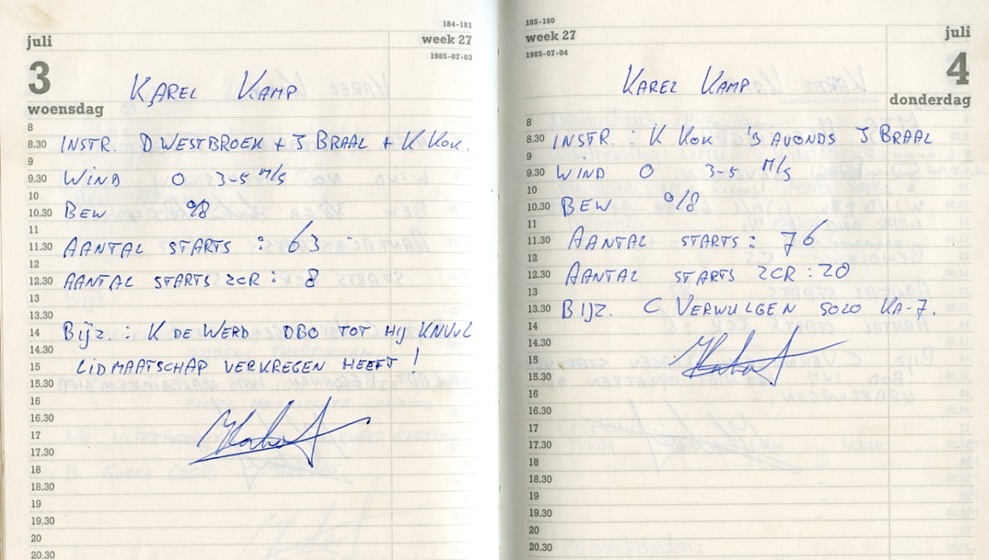 184-181
juli
week 27
1985-07-03
3
woensdag
KAREL KAMP
8
8.30 INSTR. D WESTBROEK + J BRAAL + K KOK.
9
9.30 WIND O 3-5 m/s
10
10.30 BEW 0/8
11
11.30 AANTAL STARTS : 63
12
12.30 AANTAL STARTS ZCR : 8
13
13.30
14 BIJZ. : K DE WERD DBO TOT HIJ KNVVL
14.30
15 LIDMAATSCHAP VERKREGEN HEEFT !
15.30
16
16.30
17
17.30
18
18.30
19
19.30
20
20.30
185-180
week 27
juli
1985-07-04
4
donderdag
KAREL KAMP
8
8.30 INSTR. : K KOK 'S AVONDS J BRAAL
9
9.30 WIND O 3-5 m/s
10
10.30 BEW 0/8
11
11.30 AANTAL STARTS : 76
12
12.30 AANTAL STARTS ZCR : 20
13
13.30 BIJZ. C VERWULGEN SOLO KA-7.
14
14.30
15
15.30
16
16.30
17
17.30
18
18.30
19
19.30
20
20.30